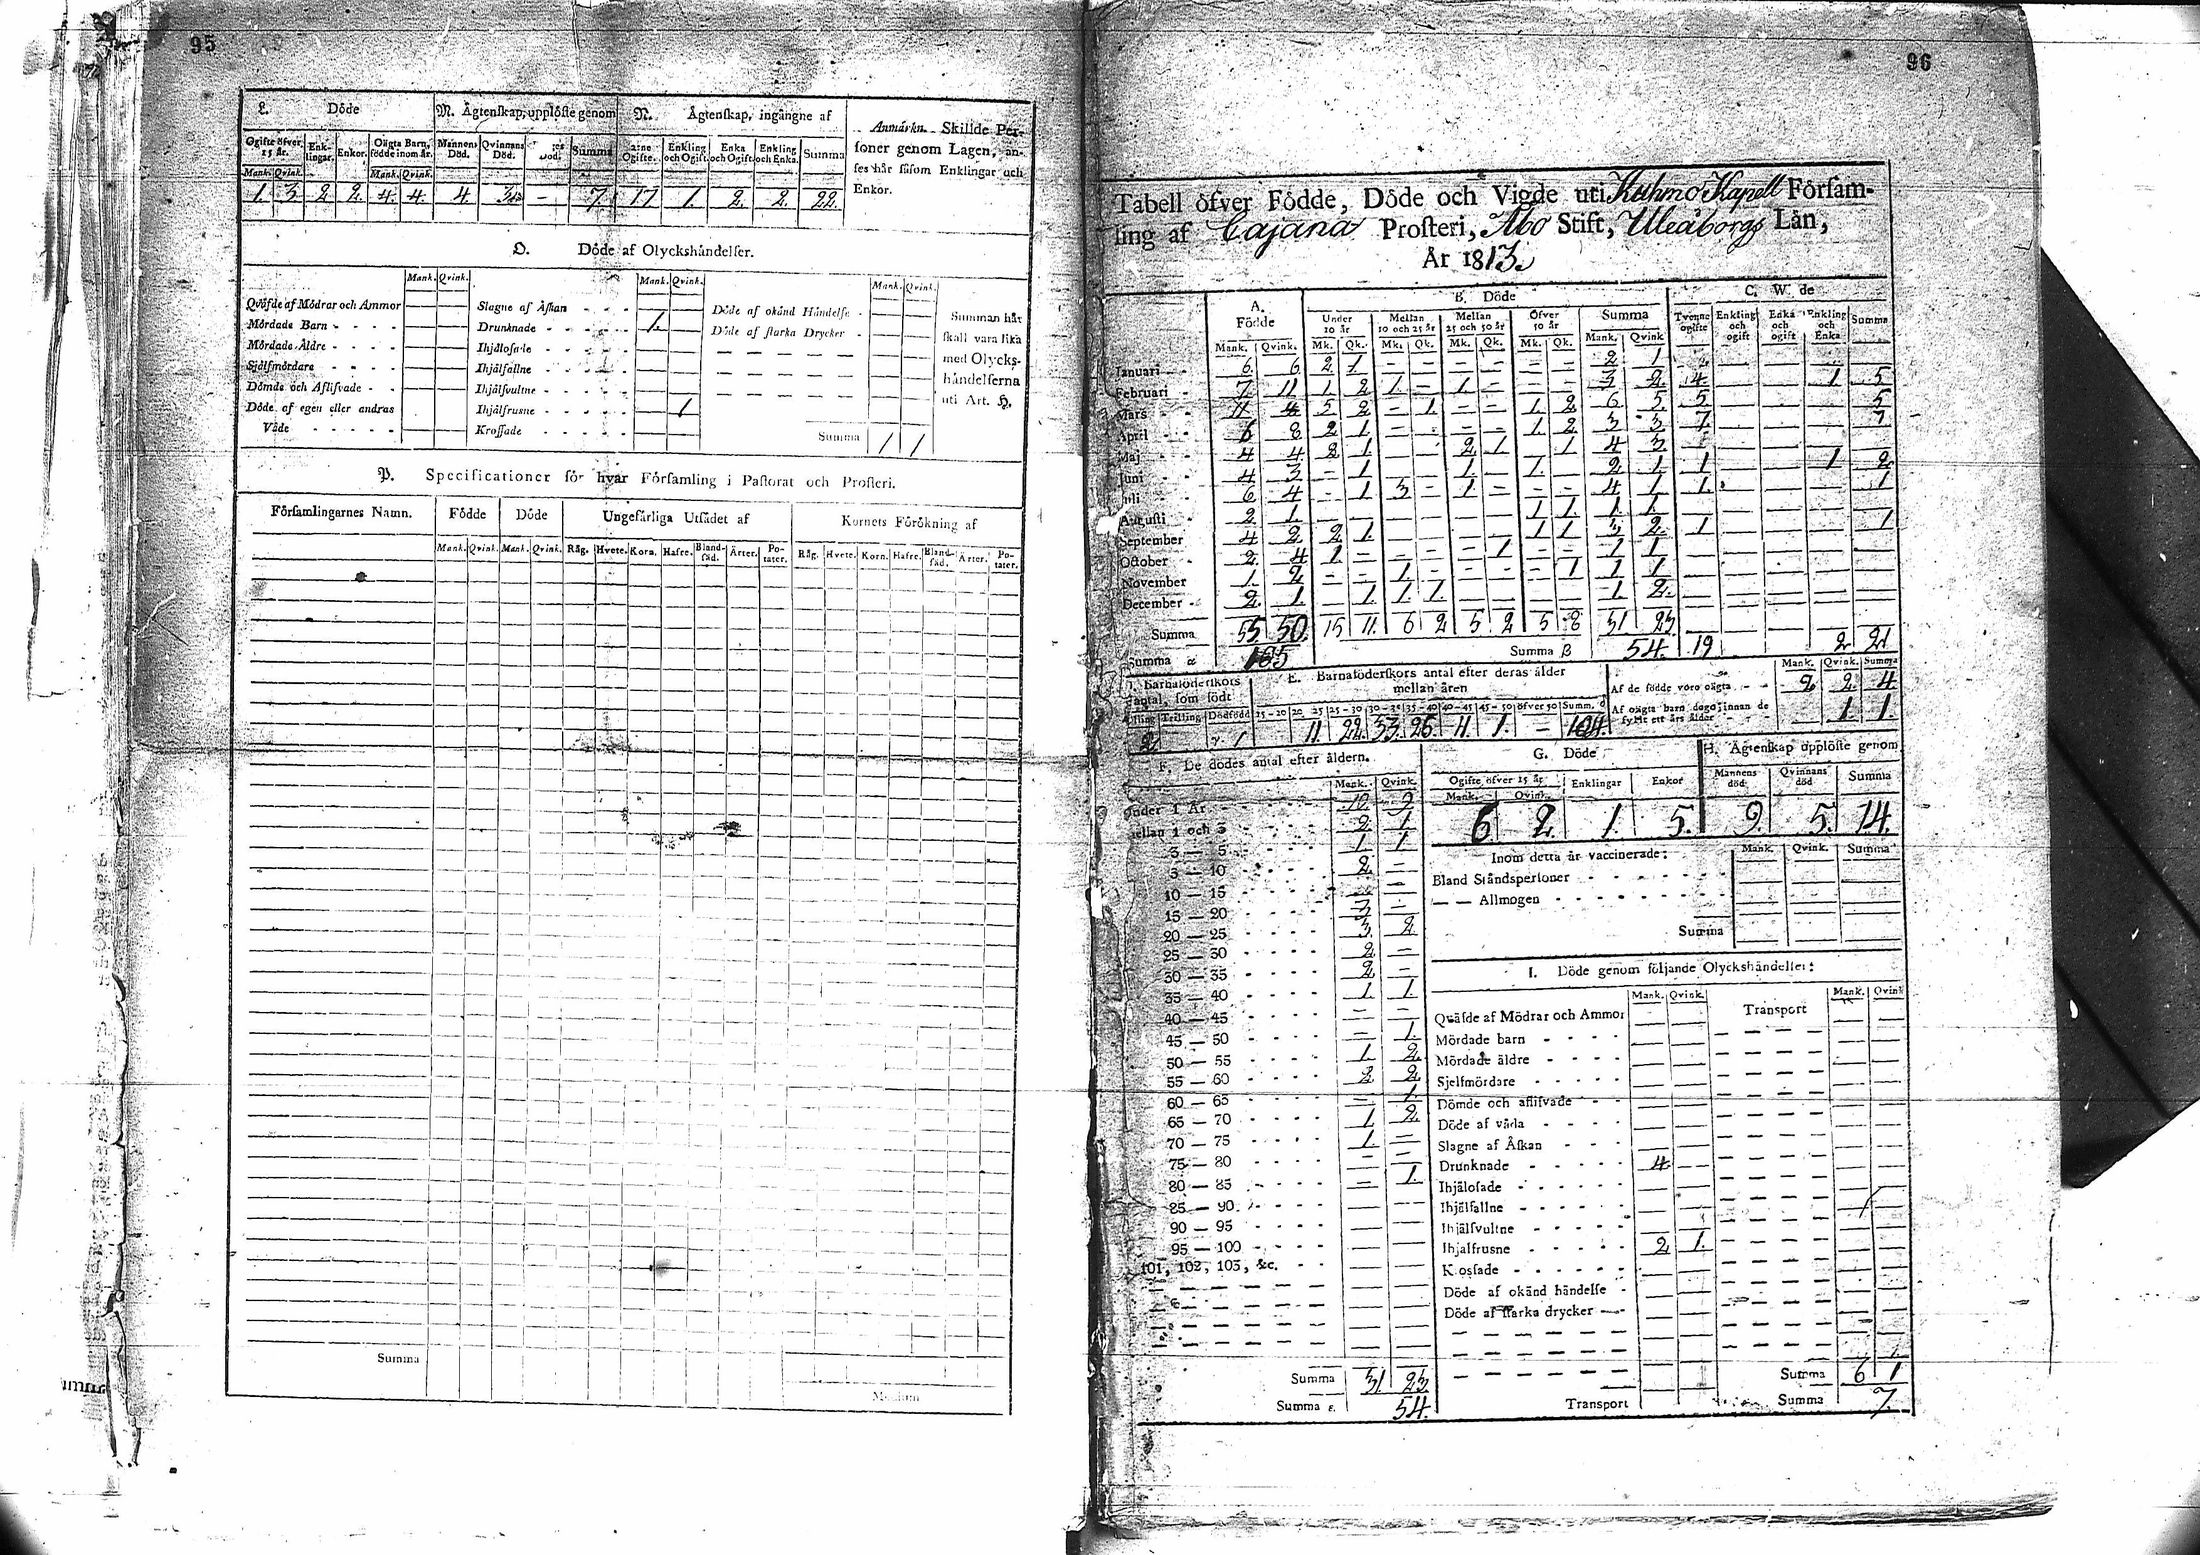 95
L. Döde
M. Ägtenskap, upplöste genom
N. Ägtenskap, ingångne af
Ogifte öfver 15 år.
Enk-lingar.
Enkor.
Oägta Barn, födde inom år.
Mannens Död.
Qvinnans Död.
Summa
Ogifte.
Enkling och Ogift.
Enka och Ogift.
Enkling och Enka.
Summa
Mank. Qvink. Mank. Qvink.
1. 3. 2 2. 4. 4. 4. – 7. 17 1. 2. 2. 22.
Anmärkn. Skillde Per-
soner genom Lagen, an-
ses här såsom Enklingar och
Enkor.
O. Döde af Olyckshändelser.
Mank. Qvink. Mank. Qvink. Mank. Qvink.
Qväfde af Mödrar och Ammor
Mördade Barn - - - -
Mördade Äldre - - - -
Sjelfmördare - - - -
Dömde och Aflifvade - -
Döde af egen eller andras
Våde - - - - -
Slagne af Åskan - - - -
Drunknade - - - - - 1.
Ihjälosade - - - - -
Ihjälfallne - - - - -
Ihjälsvultne - - - - -
Ihjälfrusne - - - - - 1
Krossade - - - - -
Döde af okänd Händelse -
Döde af starka Drycker -
Summa 1 1
Summan här
skall vara lika
med Olycks-
händelserna
uti Art. H.
P. Specificationer för hvar Församling i Pastorat och Prosteri.
Församlingarnes Namn. Födde Döde Ungefärliga Utsädet af Kornets Förökning af
Mank. Qvink. Mank. Qvink. Råg. Hvete. Korn. Hafre. Bland-säd. Ärter. Po-tater. Råg. Hvete. Korn. Hafre. Bland-säd. Ärter. Po-tater.
Summa
96
Tabell öfver Födde, Döde och Vigde uti Kuhmo Kapell Försam-
ling af Cajana Prosteri, Åbo Stift, Uleåborgs Län,
År 1813.
A. Födde
B. Döde
Under 10 år
Mellan 10 och 25 år
Mellan 25 och 50 år
Öfver 50 år
Summa
Tvenne ogifte
Enkling och ogift
Enka och ogift
Enkling och Enka
Summa
Mank. Qvink. Mk. Qk. Mk. Qk. Mk. Qk. Mk. Qk. Mank. Qvink.
Januari - 6 6 2 1 – – – – – – 2 1
Februari - 7 11 1 2 1 – 1 – – – 3 2 4 1 5
Mars - 11 4 5 2 – 1 – – 1 2 6 5 5 5
April - 6 8 2 1 – – – – 1 2 3 3 7 7
Maj - 4 4 2 1 2 1 1 4 3
Juni - 4 3 – 1 1 1 2 1 1 1 2
Juli - 6 4 – 1 3 – 1 – – – 4 1 1 1
Augusti - 2 1 1 1 1 1
September 4 2 2 1 1 1 3 2 1 1
October - 2 4 1 – – – – 1 – – 1 1
November 1 2 – – 1 – – – – 1 1 1
December - 2 1 1 1 1 1 2
Summa 55 50 15 11 6 2 5 2 5 8 31 23
Summa α 105
Summa β 54. 19 2 21
Barnaföderskors
antal, som födt
Tvilling Trilling Dödfödd
2 1
E. Barnaföderskors antal efter deras ålder
mellan åren
25 – 30 30 – 35 35 – 40 40 – 45 45 – 50 öfver 50 Summ.
11 22 33 26 11 1 – 104
Mank. Qvink. Summa
Af de födde voro oägta - - 2 2 4
Af oägta barn dogo, innan de
fyllt ett års ålder - - - 1 1
F. De dödes antal efter åldern.
Mank. Qvink.
Under 1 År - - - 10 9
Mellan 1 och 3 - - - 2 1
3 – 5 - - - 1 1
5 – 10 - - - 2 –
10 – 15 - - - –
15 – 20 - - - 3 –
20 – 25 - - - 3 2
25 – 30 - - - 2 –
30 – 35 - - - 2 –
35 – 40 - - - 1 1
40 – 45 - - - – –
45 – 50 - - - – 1
50 – 55 - - - 1 2
55 – 60 - - - 2 2
60 – 65 - - - – 1
65 – 70 - - - 1 2
70 – 75 - - - 1 –
75 – 80 - - - – –
80 – 85 - - - – 1
85 – 90 - - -
90 – 95 - - -
95 – 100 - - -
101, 102, 103, &c. - -
Summa 31 23
Summa ε. 54.
G. Döde
Ogifte öfver 15 år Enklingar Enkor
Mank. Qvink.
6 2 1. 5.
H. Ägtenskap upplöste genom
Mannens död Qvinnans död Summa
9. 5. 14.
Inom detta år vaccinerade: Mank. Qvink. Summa
Bland Ståndspersoner - - - -
— — Allmogen - - - -
Summa
I. Döde genom följande Olyckshändelser:
Mank. Qvink. Transport Mank. Qvink
Qväfde af Mödrar och Ammor
Mördade barn - - - -
Mördade äldre - - - -
Sjelfmördare - - - -
Dömde och aflifvade - -
Döde af våda - - - -
Slagne af Åskan - - - -
Drunknade - - - - 4
Ihjälosade - - - -
Ihjälfallne - - - -
Ihjälsvultne - - - -
Ihjalfrusne - - - - 2 1.
Krossade - - - -
Döde af okänd händelse -
Döde af starka drycker -
Summa 6 1
Transport
Summa 7.